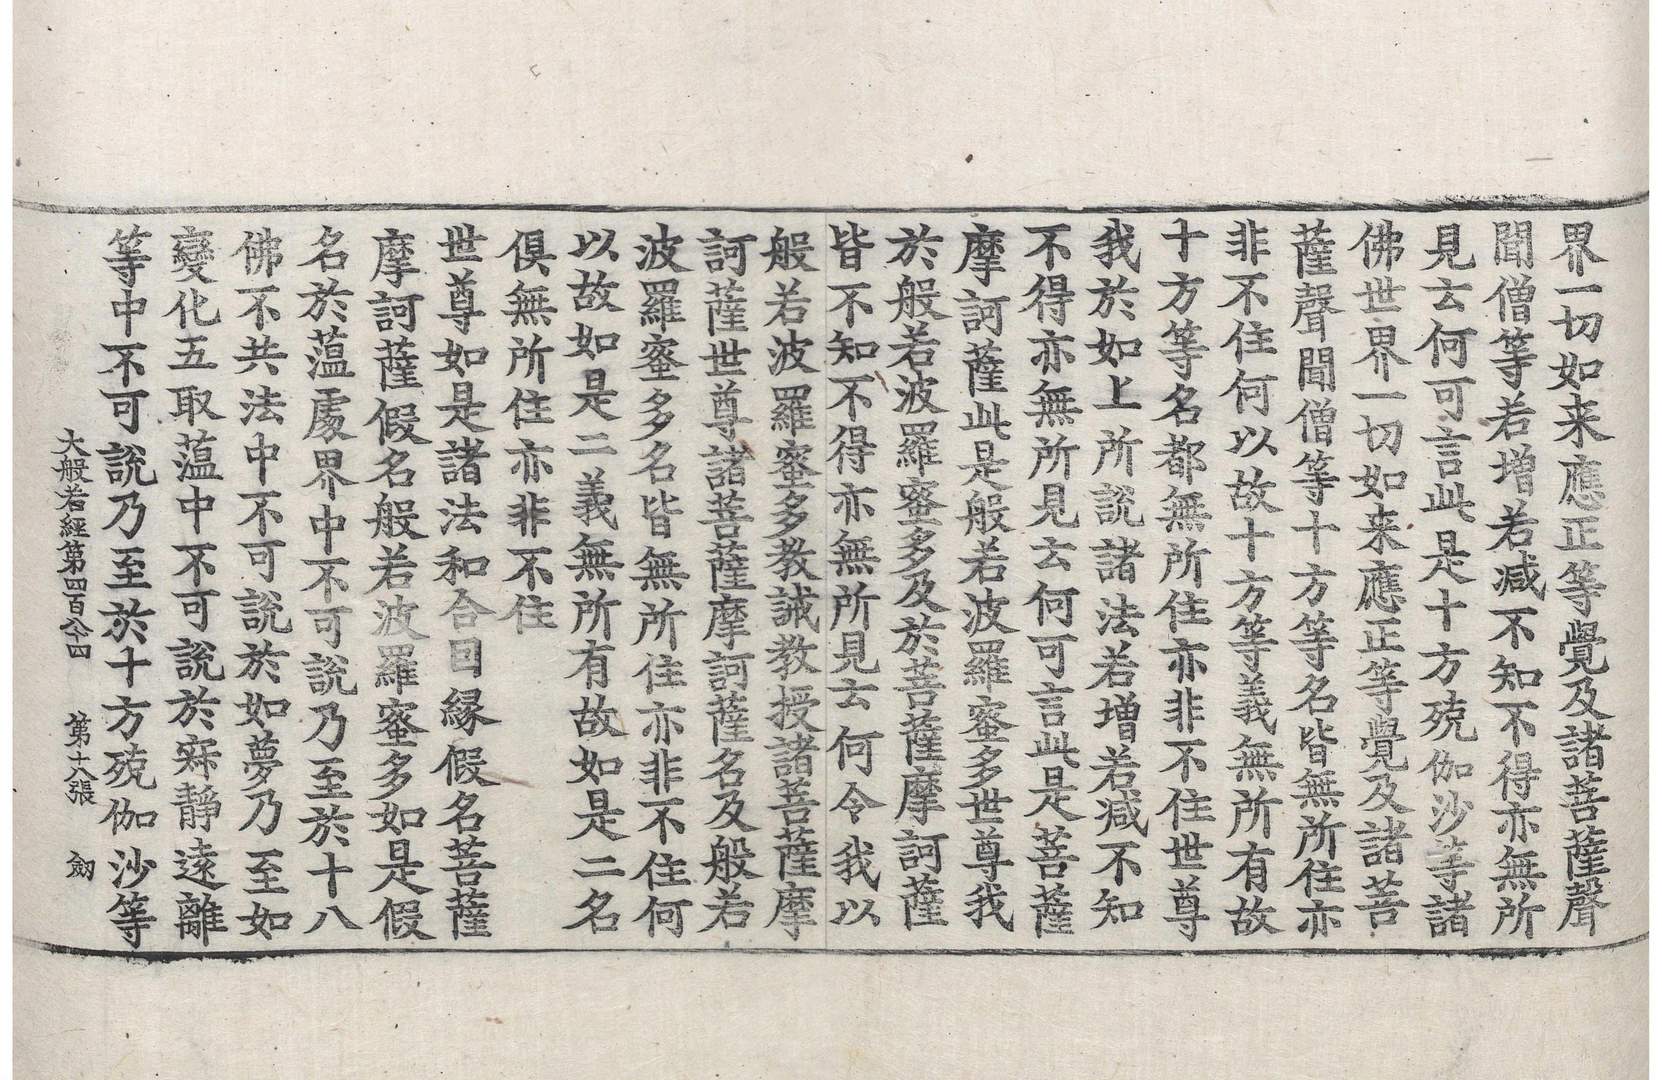 界一切如来應正等覺及諸菩薩聲
聞僧等若增若減不知不得亦無所
見云何可言此是十方殑伽沙等諸
佛世界一切如来應正等覺及諸菩
薩聲聞僧等十方等名皆無所住亦
非不住何以故十方等義無所有故
十方等名都無所住亦非不住世尊
我於如上所說諸法若增若減不知
不得亦無所見云何可言此是菩薩
摩訶薩此是般若波羅蜜多世尊我
於般若波羅蜜多及於菩薩摩訶薩
皆不知不得亦無所見云何令我以
般若波羅蜜多教誡教授諸菩薩摩
訶薩世尊諸菩薩摩訶薩名及般若
波羅蜜多名皆無所住亦非不住何
以故如是二義無所有故如是二名
俱無所住亦非不住
世尊如是諸法和合回緣假名菩薩
摩訶薩假名般若波羅蜜多如是假
名於薀處界中不可說乃至於十八
佛不共法中不可說於如夢乃至如
變化五取薀中不可說於寂靜遠離
等中不可說乃至於十方殑伽沙等
大般若經第四百八十四 第十八張 劒